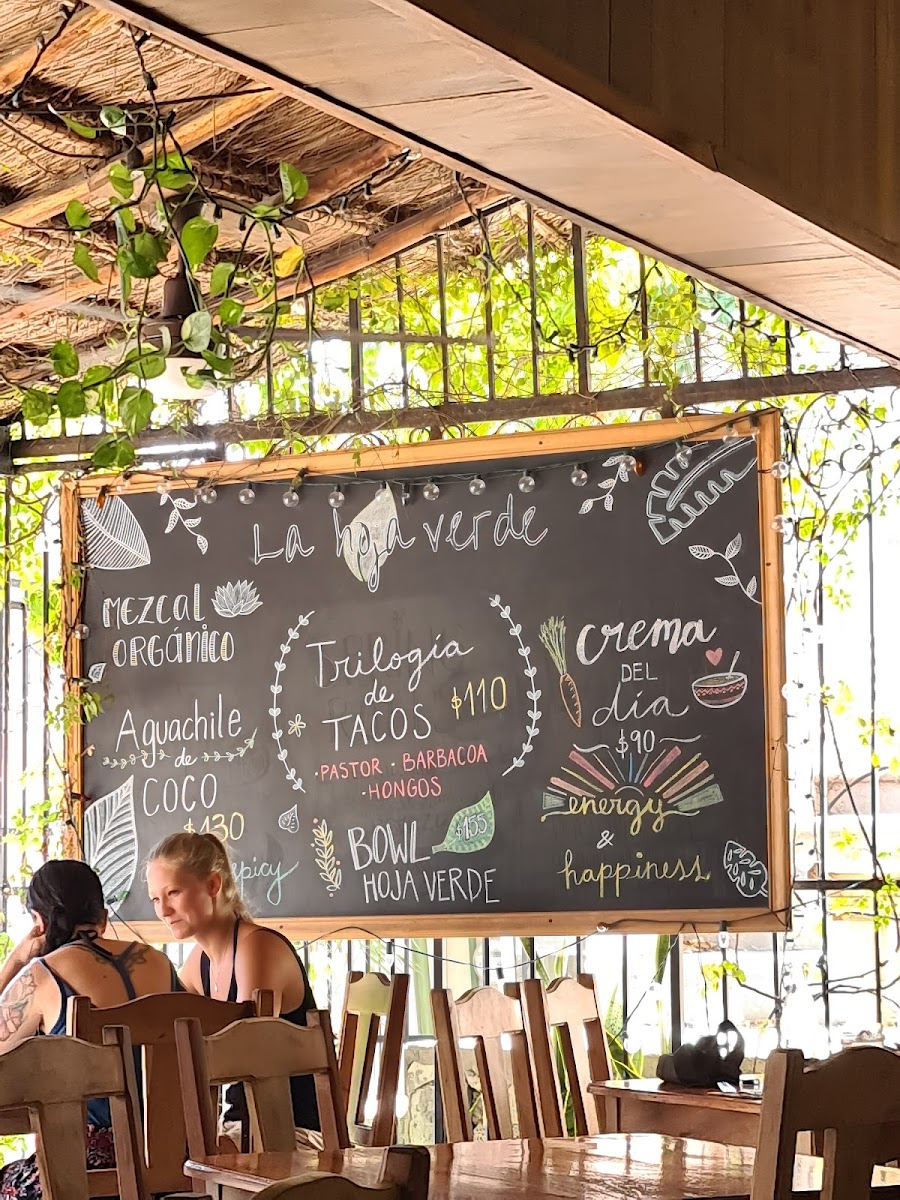 La hoja verde
MEZCAL
ORGÁNICO
Aguachile
de
COCO
$130
spicy
Trilogía
de
TACOS $110
·PASTOR ·BARBACOA
·HONGOS
BOWL $155
HOJA VERDE
Crema
DEL
día
$90
energy
&
happiness